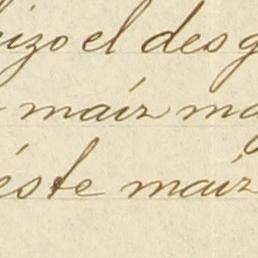 hizo el desg
maíz ma
éste maíz